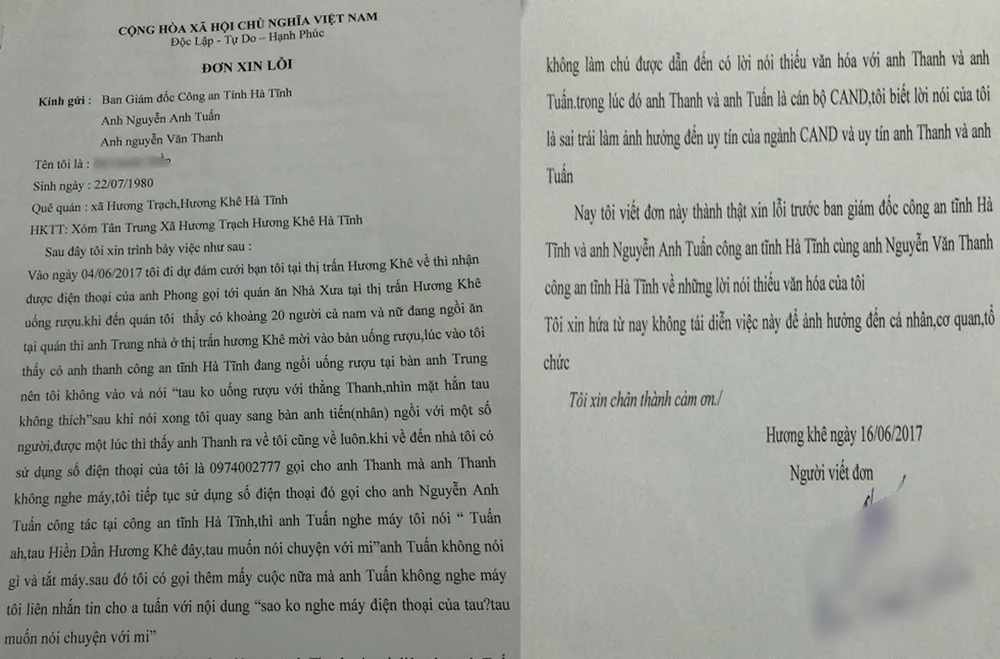 CỘNG HÒA XÃ HỘI CHỦ NGHĨA VIỆT NAM
Độc Lập - Tự Do – Hạnh Phúc
ĐƠN XIN LỖI
Kính gửi : Ban Giám đốc Công an Tỉnh Hà Tĩnh
Anh Nguyễn Anh Tuấn
Anh nguyễn Văn Thanh
Tên tôi là :
Sinh ngày : 22/07/1980
Quê quán : xã Hương Trạch,Hương Khê Hà Tĩnh
HKTT: Xóm Tân Trung Xã Hương Trạch Hương Khê Hà Tĩnh
Sau đây tôi xin trình bày việc như sau :
Vào ngày 04/06/2017 tôi đi dự đám cưới bạn tôi tại thị trấn Hương Khê về thì nhận
được điện thoại của anh Phong gọi tới quán ăn Nhà Xưa tại thị trấn Hương Khê
uống rượu.khi đến quán tôi thấy có khoảng 20 người cả nam và nữ đang ngồi ăn
tại quán thì anh Trung nhà ở thị trấn hương Khê mời vào bàn uống rượu,lúc vào tôi
thấy có anh thanh công an tĩnh Hà Tĩnh đang ngồi uống rượu tại bàn anh Trung
nên tôi không vào và nói “tau ko uống rượu với thằng Thanh,nhìn mặt hắn tau
không thích”sau khi nói xong tôi quay sang bàn anh tiến(nhân) ngồi với một số
người,được một lúc thì thấy anh Thanh ra về tôi cũng về luôn.khi về đến nhà tôi có
sử dụng số điện thoại của tôi là 0974002777 gọi cho anh Thanh mà anh Thanh
không nghe máy,tôi tiếp tục sử dụng số điện thoại đó gọi cho anh Nguyễn Anh
Tuấn công tác tại công an tĩnh Hà Tĩnh,thì anh Tuấn nghe máy tôi nói “ Tuấn
ah,tau Hiền Dần Hương Khê đây,tau muốn nói chuyện với mi”anh Tuấn không nói
gì và tắt máy.sau đó tôi có gọi thêm mấy cuộc nữa mà anh Tuấn không nghe máy
tôi liên nhắn tin cho a tuấn với nội dung “sao ko nghe máy điện thoại của tau?tau
muốn nói chuyện với mi”
không làm chủ được dẫn đến có lời nói thiếu văn hóa với anh Thanh và anh
Tuấn.trong lúc đó anh Thanh và anh Tuấn là cán bộ CAND,tôi biết lời nói của tôi
là sai trái làm ảnh hưởng đến uy tín của ngành CAND và uy tín anh Thanh và anh
Tuấn
Nay tôi viết đơn này thành thật xin lỗi trước ban giám đốc công an tĩnh Hà
Tĩnh và anh Nguyễn Anh Tuấn công an tĩnh Hà Tĩnh cùng anh Nguyễn Văn Thanh
công an tĩnh Hà Tĩnh về những lời nói thiếu văn hóa của tôi
Tôi xin hứa từ nay không tái diễn việc này để ảnh hưởng đến cá nhân,cơ quan,tổ
chức
Tôi xin chân thành cảm ơn./
Hương khê ngày 16/06/2017
Người viết đơn